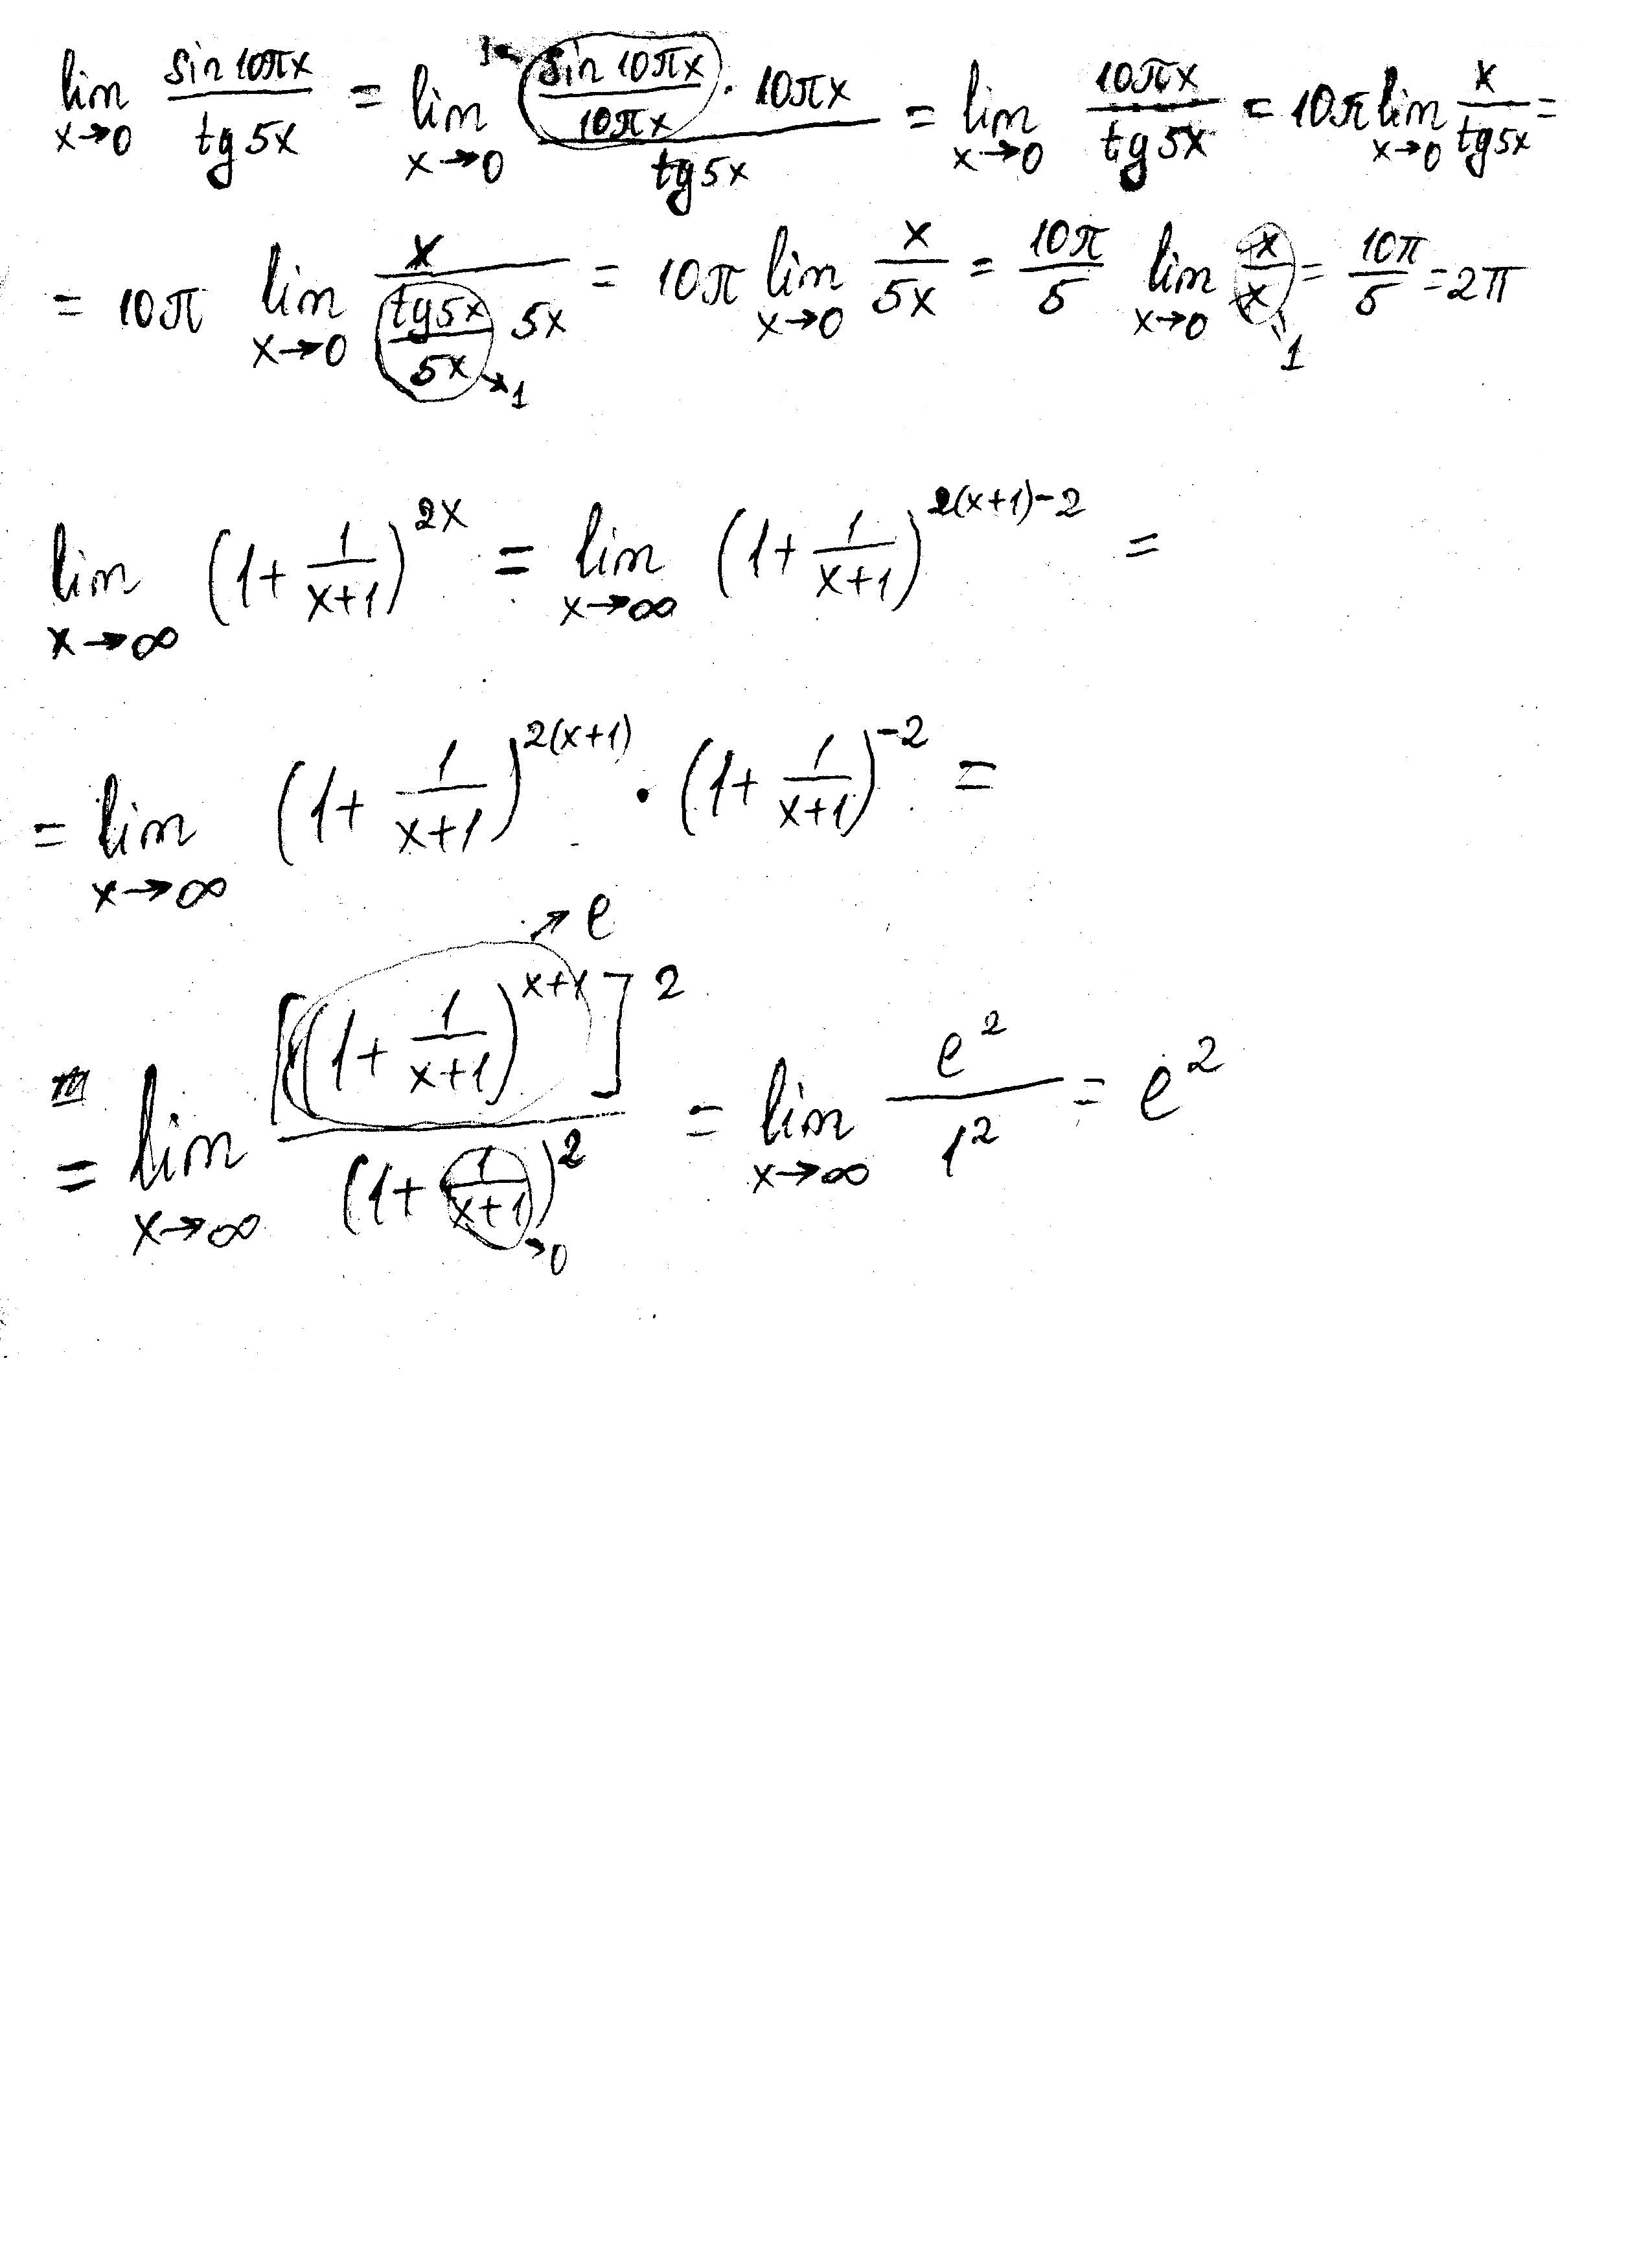 lim x→0 sin 10πx / tg 5x = lim x→0 (sin 10πx / 10πx) →1 · 10πx / tg 5x = lim x→0 10πx / tg 5x = 10π lim x→0 x / tg 5x =
= 10π lim x→0 x / ((tg 5x / 5x) →1 5x) = 10π lim x→0 x / 5x = 10π / 5 lim x→0 (x / x) →1 = 10π / 5 = 2π
lim x→∞ (1 + 1/(x+1))^2x = lim x→∞ (1 + 1/(x+1))^2(x+1)-2 =
= lim x→∞ (1 + 1/(x+1))^2(x+1) · (1 + 1/(x+1))^-2 =
= lim x→∞ [((1 + 1/(x+1))^x+1 →e]^2 / (1 + 1/(x+1) →0)^2 = lim x→∞ e^2 / 1^2 = e^2